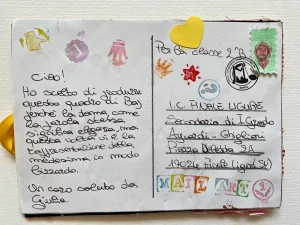 Ciao!
Ho scelto di produrre
questo quadro di Boy
perché la dama, come
la parola stessa
significa eleganza, ma
questa volta vi è la
rappresentazione della
medesima in modo
bizzarro.
Un caro saluto da
Giulia.
Per la classe 2ªB
I.C. FINALE LIGURE
Secondaria di I Grado
Aycardi - Ghiglieri
Piazza 3A
17024 Finale Ligure (SV)
MAIL ART